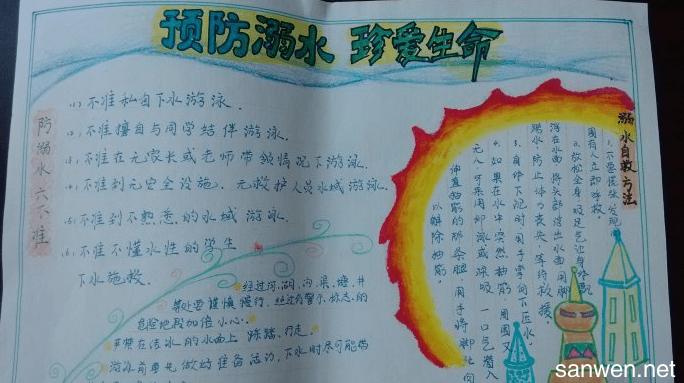 预防溺水 珍爱生命
防溺水六不准
(1) 不准私自下水游泳.
(2) 不准擅自与同学结伴游泳.
(3) 不准在无家长或老师带领情况下游泳.
(4) 不准到无安全设施、无救护人员水域游泳.
(5) 不准到不熟悉的水域游泳.
(6) 不准不懂水性的学生
下水施救.
经过河、湖、沟、渠、塘、井
等处要谨慎慢行,经过有警示标志的
危险地段加倍小心.
严禁在结冰的水面上
行走.
游泳前要先做好准备活动,下水时尽可能
溺水自救方法
1. 不要慌张,发现
围有人立即呼救.
2. 放松全身,
浮在水面,将头部浮出水面,用脚
踢水,防止体力丧失,等待救援.
3. 身体下沉时,用手掌向下压水.
4. 如果在水中突然抽筋,
无人可采用仰泳 一口气潜入
伸直抽筋的那条腿,用手将脚趾向
以解除抽筋.
sanwen.net